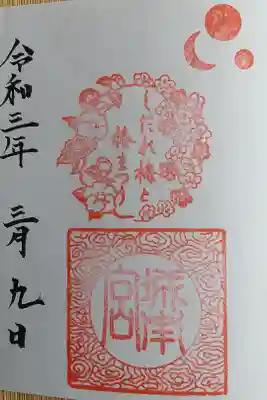 しだれ梅と
椿まつり
城南
宮
令和三年 三月九日